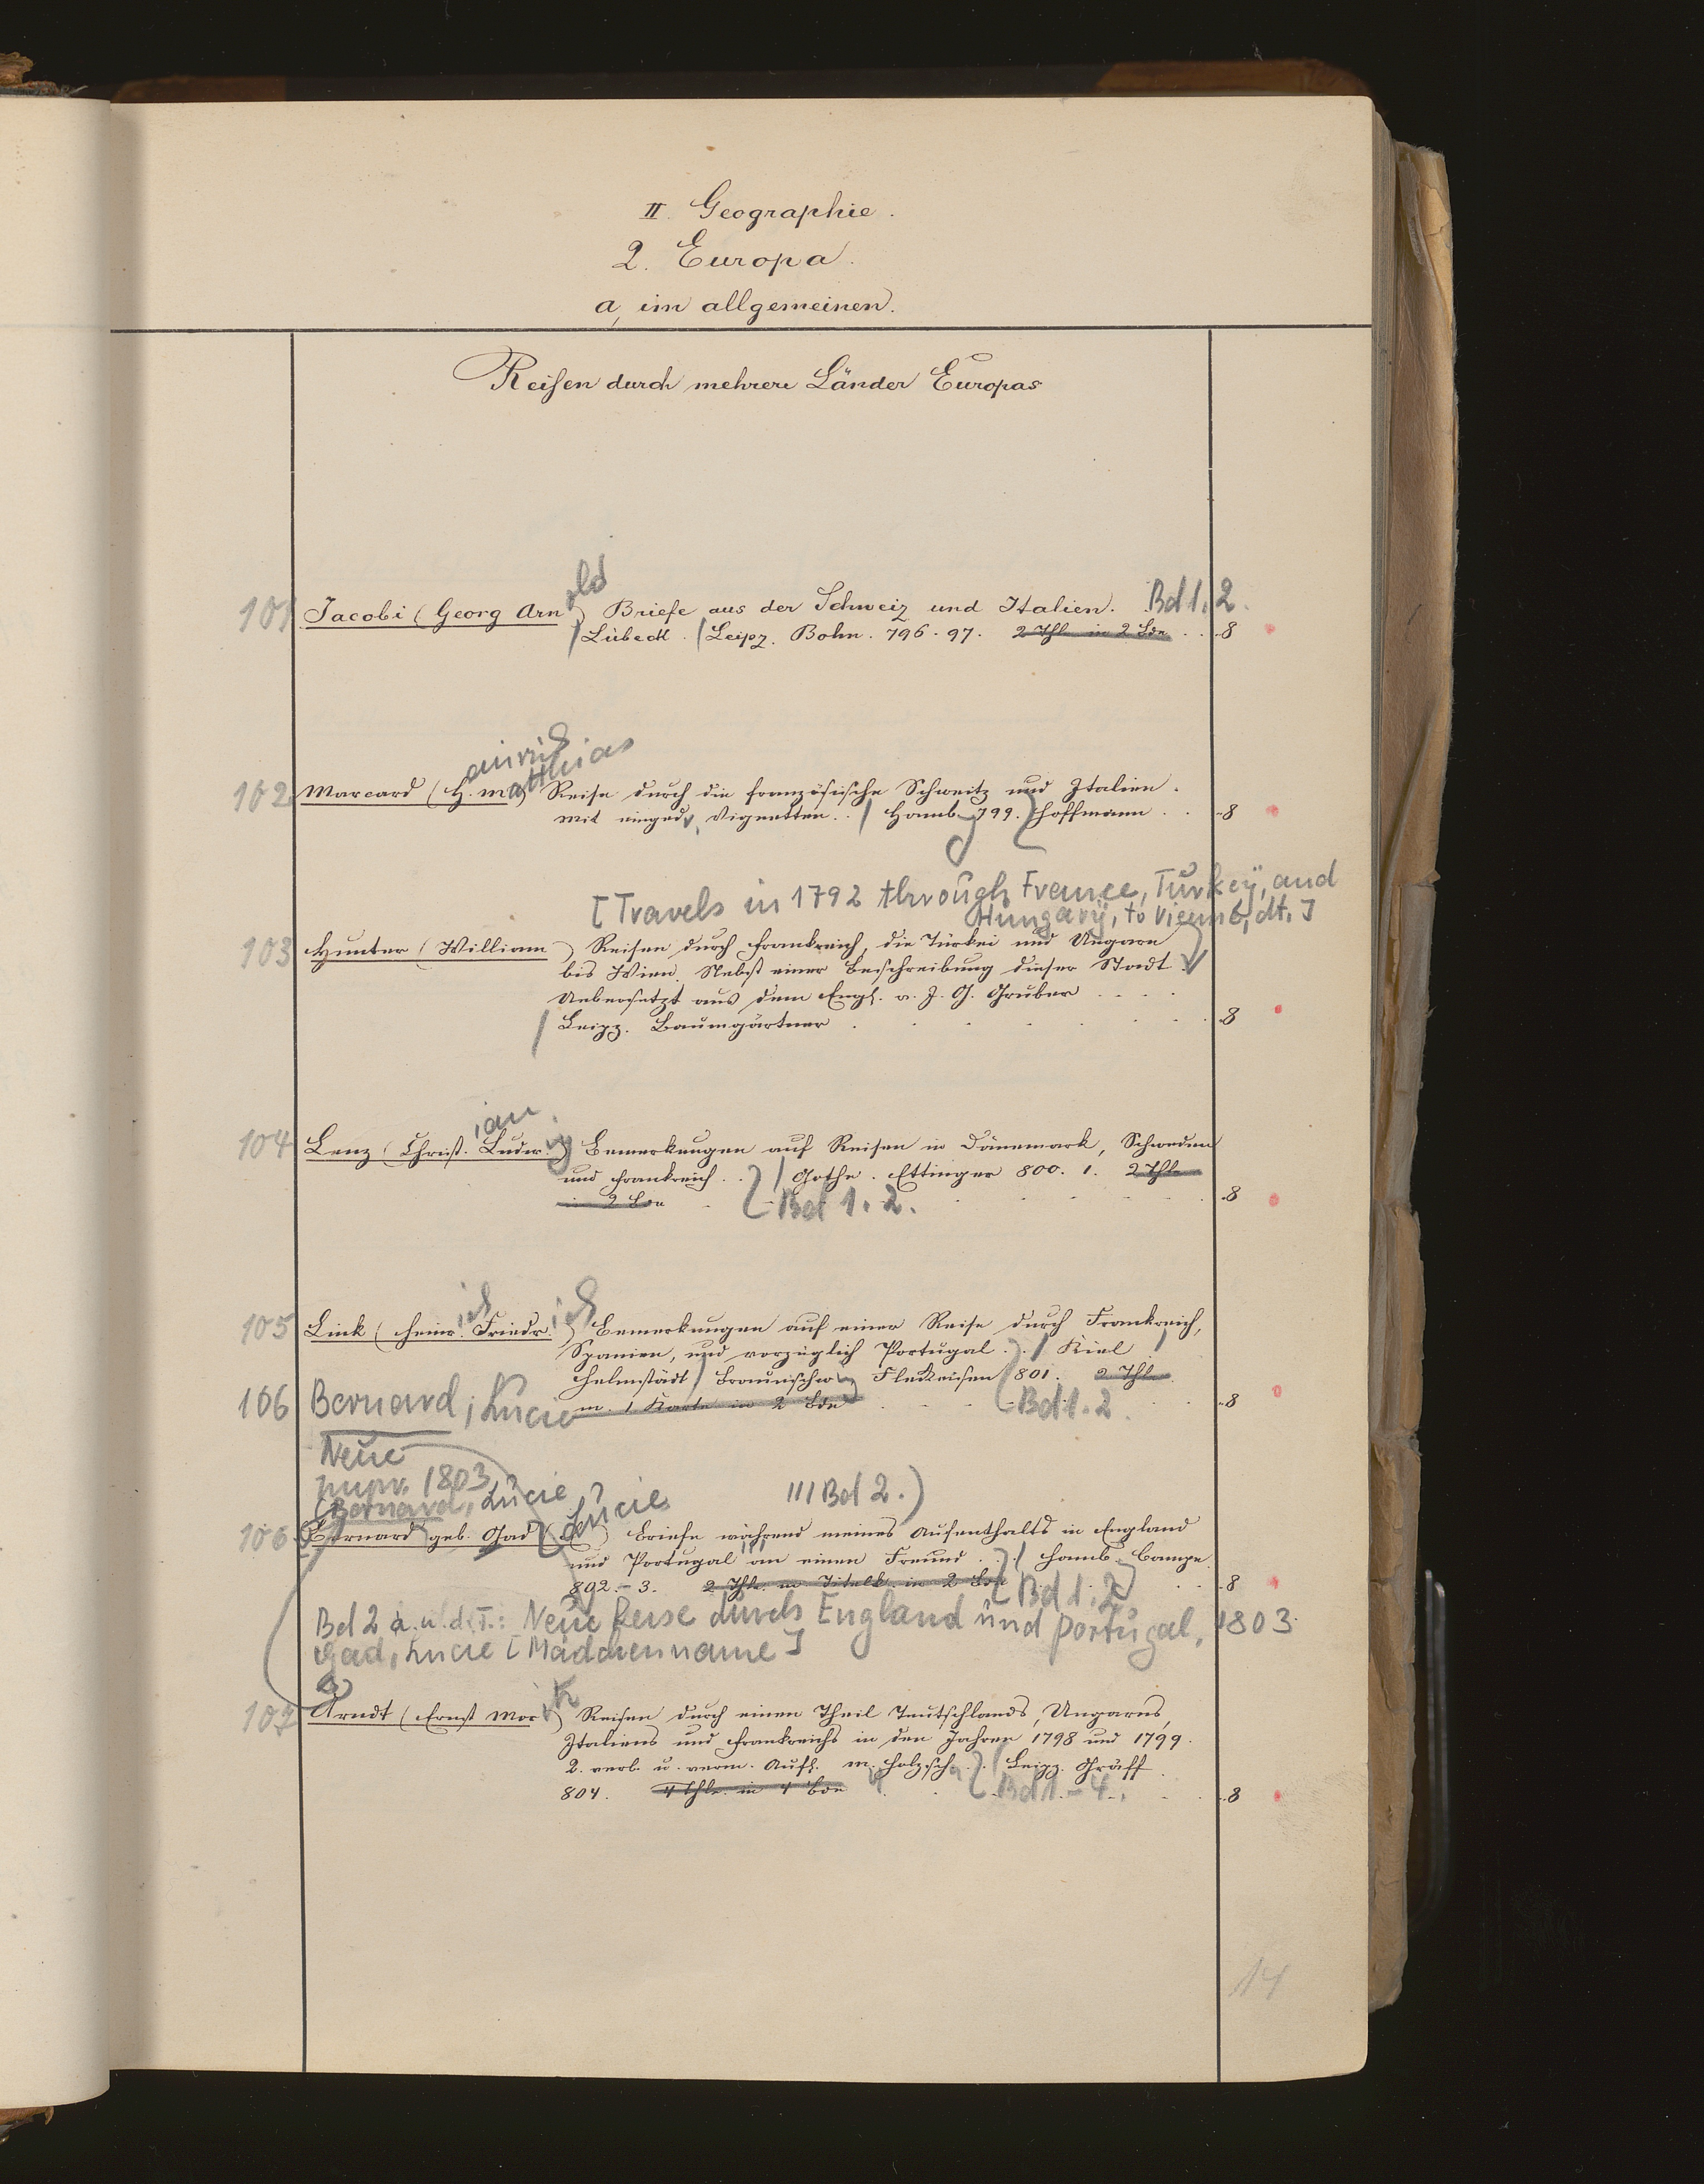 II. Geographie.
2. Europa.
a, im allgemeinen.
Reisen durch mehrere Länder Europas
old
101 Jacobi (Georg Arn ) Briefe aus der Schweiz und Italien. Bd 1. 2.
/ Lübeck. / Leipz. Bohn. 796. 97. 2 Thl in 2 Bde . . 8
einrich
atthias
102 Marcard (H. M.) Reise durch die französische Schweitz und Italien.
Mit eingedr. Vignetten. . / Hamb 799. Hoffmann . . 8
[Travels in 1792 through France, Turkey, and
Hungary, to Vienna, dt.]
103 Hunter (William ) Reisen durch Frankreich, die Türkei und Ungarn
bis Wien. Nebst einer Beschreibung dieser Stadt
Uebersetzt aus dem Engl. v. J. G. Gruber . . . .
/ Leipz. Baumgärtner . . . . . . . . 8
ian
104 Lenz (Christ. Ludw.ig) Bemerkungen auf Reisen in Dänemark, Schweden
und Frankreich. . / Gotha. Ettinger 800. 1. 2 Thle
in 2 Bde . . . . . . 8
Bd 1. 2.
ich ich
105 Link (Heinr. Friedr. ) Bemerkungen auf einer Reise durch Frankreich,
Spanien, und vorzüglich Portugal. . / Kiel /
Helmstädt / Braunschw Fleckeisen 801. 2 Thle
m. 1 Karte in 2 Bde . . . Bd 1. 2. . . 8
106 Bernard, Lucie
Neue
1803
(Bernard, Lucie )
Lucie /// Bd 2.)
106 Bernard geb. Gad ( ) Briefe während meines Aufenthalts in England
und Portugal an einen Freund . . / Hamb. Campe
802. - 3. 2 Thle m Titelk. in 2 Bde Bd 1. 2 . . 8
Bd 2 a. u. d. T.: Neue Reise durch England und Portugal, 1803.
Gad, Lucie [Mädchenname]
107 Arndt (Ernst Moritz) Reisen durch einen Theil Teutschlands, Ungarns,
Italiens und Frankreichs in den Jahren 1798 und 1799.
2. verb. u. verm. Aufl. m. Holzsch. . / Leipz. Gräff
804. 4 Thle. in 4 Bde . . Bd 1. - 4. . . 8
14